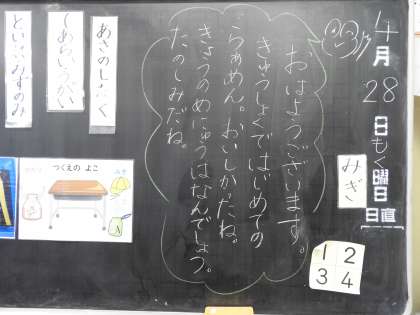 4月28日もく曜日
日直
みぎ
1 2
3 4
おはようございます。
きゅうしょくではじめての
らぁめん。おいしかったね。
きょうのめにゅうはなんでしょう。
たのしみだね。
あさのしたく
てあらいうがい
といれみずのみ
つくえの よこ